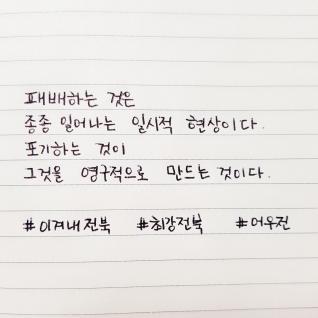 패배하는 것은
종종 일어나는 일시적 현상이다.
포기하는 것이
그것을 영구적으로 만드는 것이다.
#이겨내전북 #최강전북 #어우전